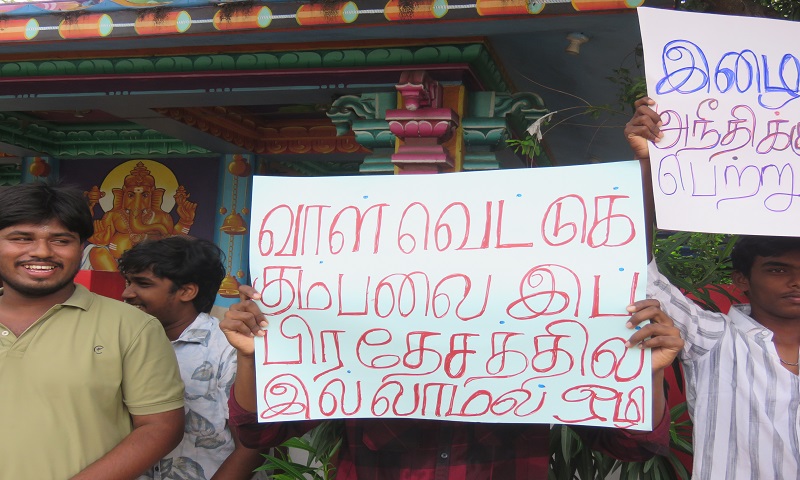 வாள் வெட்டுக்
கும்பலை இப்
பிரதேசத்தில்
இல்லாமல் ஒழி
இழை
அநீதிக்கு
பெற்று